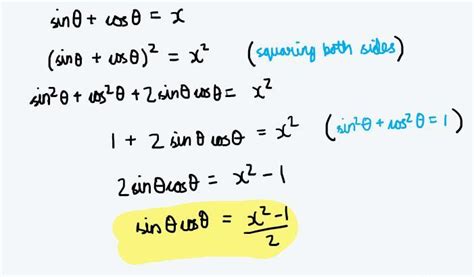 sinθ + cosθ = x
(sinθ + cosθ)² = x² (squaring both sides)
sin²θ + cos²θ + 2sinθcosθ = x²
1 + 2 sinθ cosθ = x² (sin²θ + cos²θ = 1)
2sinθcosθ = x² - 1
sinθcosθ = x²-1/2